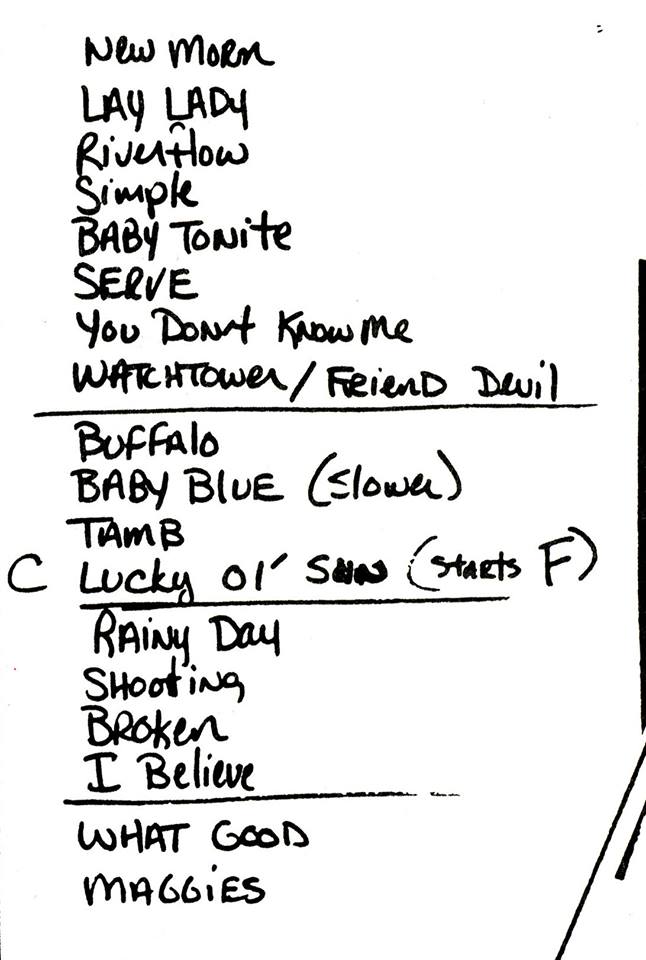 New Morn
LAY LADY
Riverflow
Simple
BABY Tonite
SERVE
You Don't Know Me
WATCHTower / Friend Devil
Buffalo
BABY BLUE (Slower)
TAMB
C Lucky Ol' Sun (STARTS F)
RAiny Day
SHooting
BRoken
I Believe
WHAT GOOD
MAGGiES